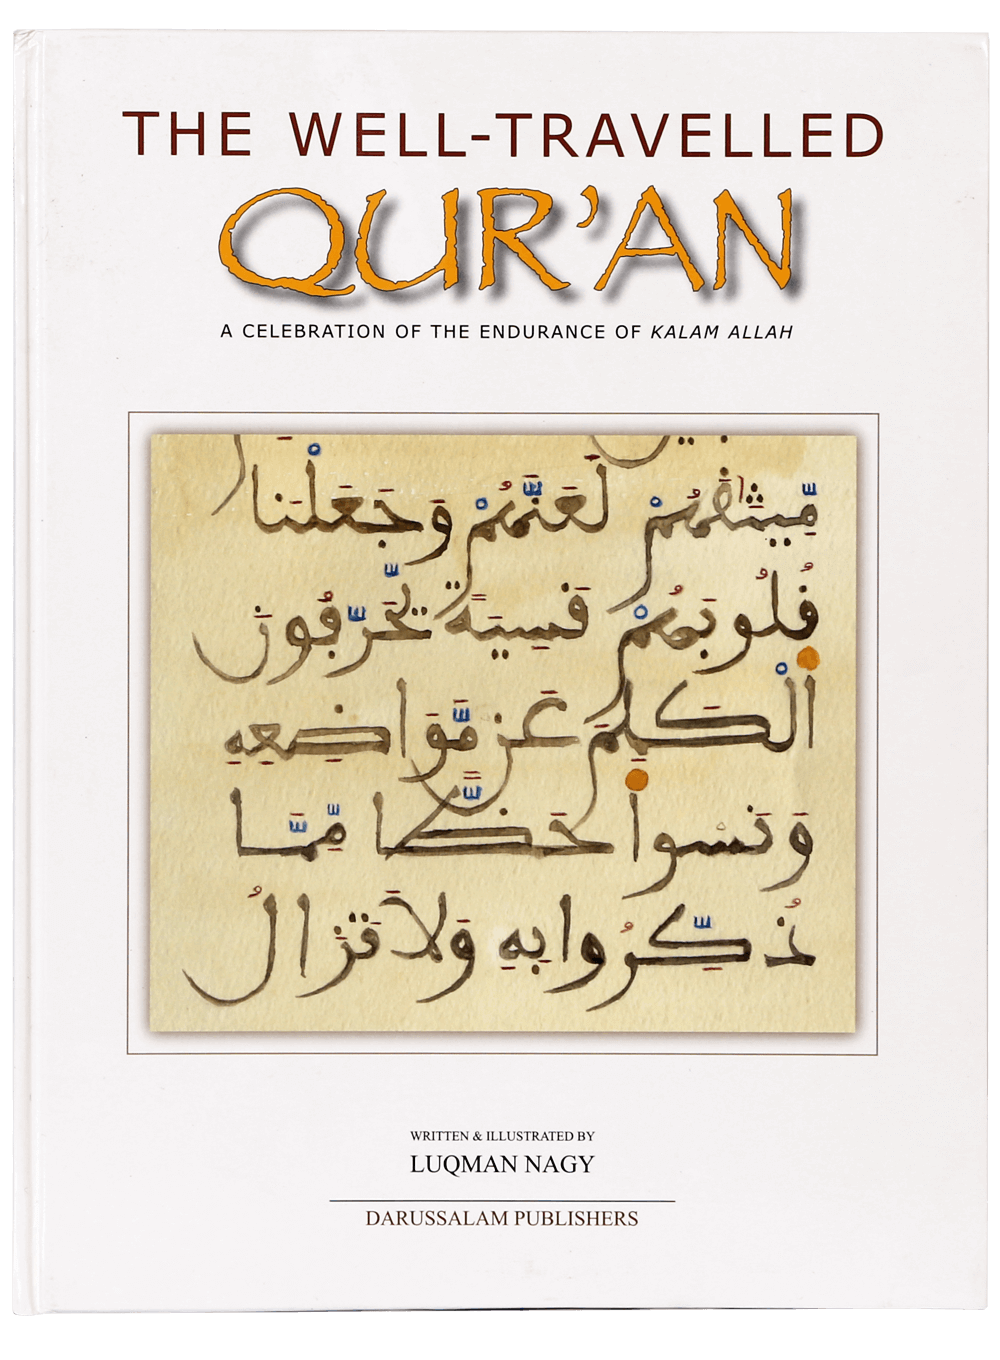 THE WELL-TRAVELLED
QUR'AN
A CELEBRATION OF THE ENDURANCE OF KALAM ALLAH
مِّيثَٰقَهُمْ لَعَنَّهُمْ وَجَعَلْنَا
قُلُوبَهُمْ قَسِيَةً يُحَرِّفُونَ
اَلْكَلِمَ عَن مَّوَاضِعِهِ
وَنَسُوا حَظًّا مِّمَّا
ذُكِّرُوا بِهِ وَلَا تَزَالُ
WRITTEN & ILLUSTRATED BY
LUQMAN NAGY
DARUSSALAM PUBLISHERS